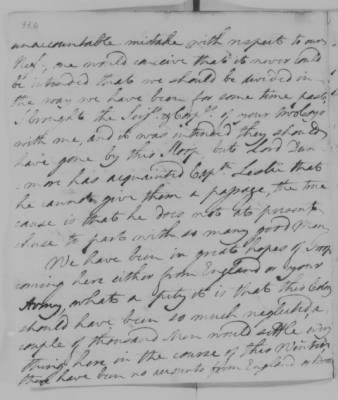 334
unaccountable mistake with respect to our
Regt, one would conceive that it never could
be intended that we should be divided in
the way we have been for some time past,
I brought the Serjts & Corpls of your two Coys
with me, and it was intended they should
have gone by this Sloop but Lord Dun
-more has acquainted Captn Leslie that
he cannot give them a passage, the true
cause is that he does not at present
chuse to part with so many good Men.
We have been in great hopes of Troops
coming here either from England or your
Army, what a pity it is that this Colony
should have been so much neglected, a
couple of thousand Men would settle every
thing here in the course of this Winter,
there have been no accounts from England